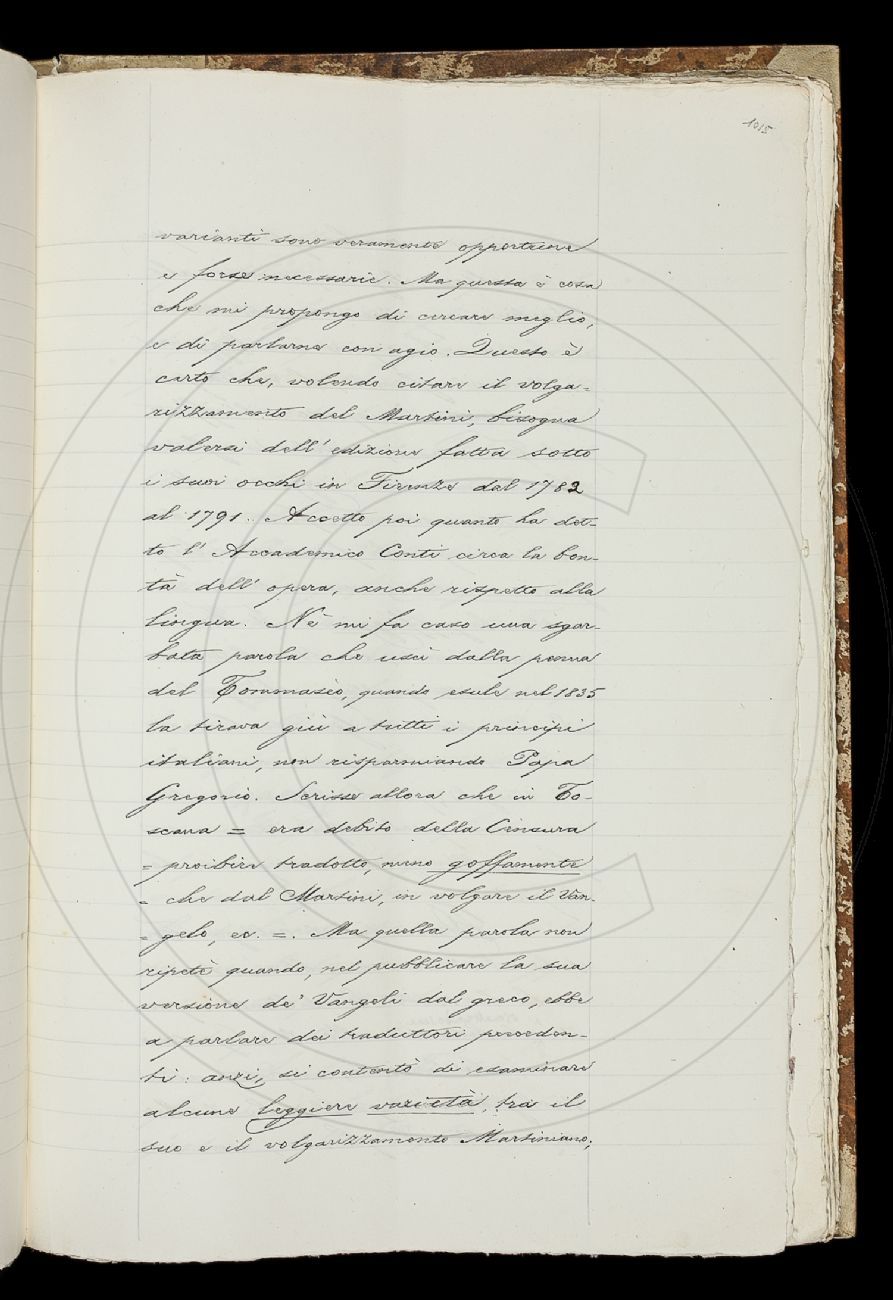 1015
varianti sono veramente opportune
e forse necessarie. Ma questa è cosa
che mi propongo di cercare meglio,
e di parlarne con agio. Questo è
certo che, volendo citare il volga-
rizzamento del Martini, bisogna
valersi dell' edizione fatta sotto
i suoi occhi in Firenze dal 1782
al 1791. Accetto poi quanto ha det-
to l' Accademico Conti circa la bon-
tà dell' opera, anche rispetto alla
lingua. Nè mi fa caso una sgar-
bata parola che uscì dalla penna
del Tommasèo, quando esule nel 1835
la tirava giù a tutti i principi
italiani, non risparmiando Papa
Gregorio. Scrisse allora che in To-
scana = era debito della Censura
= proibire tradotto, meno goffamente
= che dal Martini, in volgare il Van-
= gelo, ec. =. Ma quella parola non
ripetè quando, nel pubblicare la sua
versione de' Vangeli dal greco, ebbe
a parlare dei traduttori preceden-
ti: anzi, si contentò di esaminare
alcune leggiere varietà, tra il
suo e il volgarizzamento Martiniano;